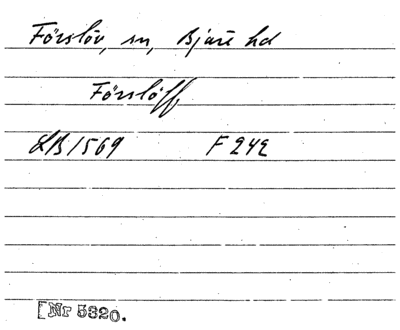 Förslöv, sn, Bjäre hd
Förslöff
LB 1569 F 242
[Nr 5320.